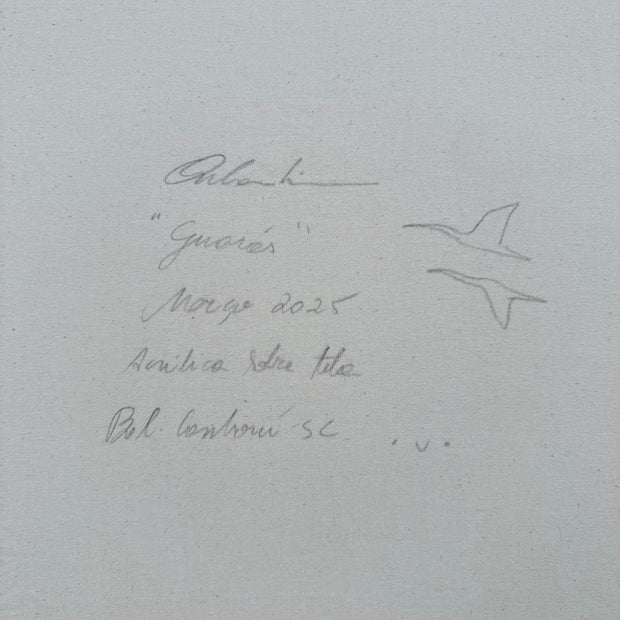 "Guarás"
Março 2025
Acrílica sobre tela
Bal. Camboriú - SC